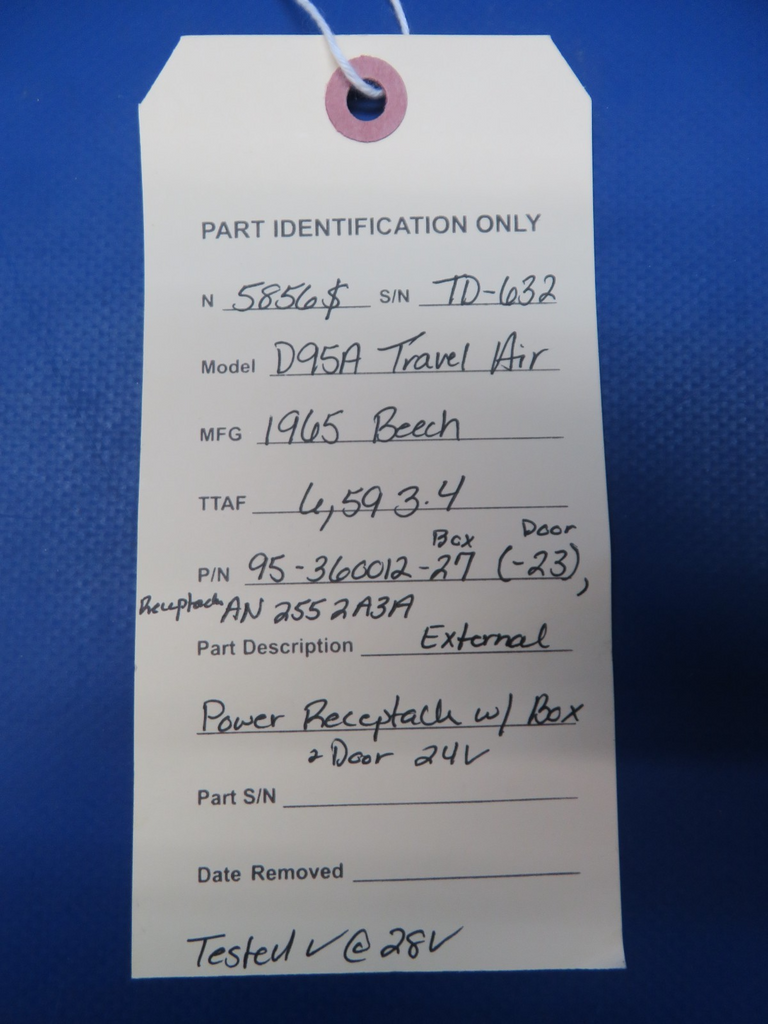 PART IDENTIFICATION ONLY
N 5856$ S/N TD-632
Model D95A Travel Air
MFG 1965 Beech
TTAF 6,593.4
Box Door
P/N 95-360012-27 (-23),
Receptacle AN 2552A3A
Part Description External
Power Receptacle w/ Box
& Door 24V
Part S/N
Date Removed
Tested ✓ @ 28V